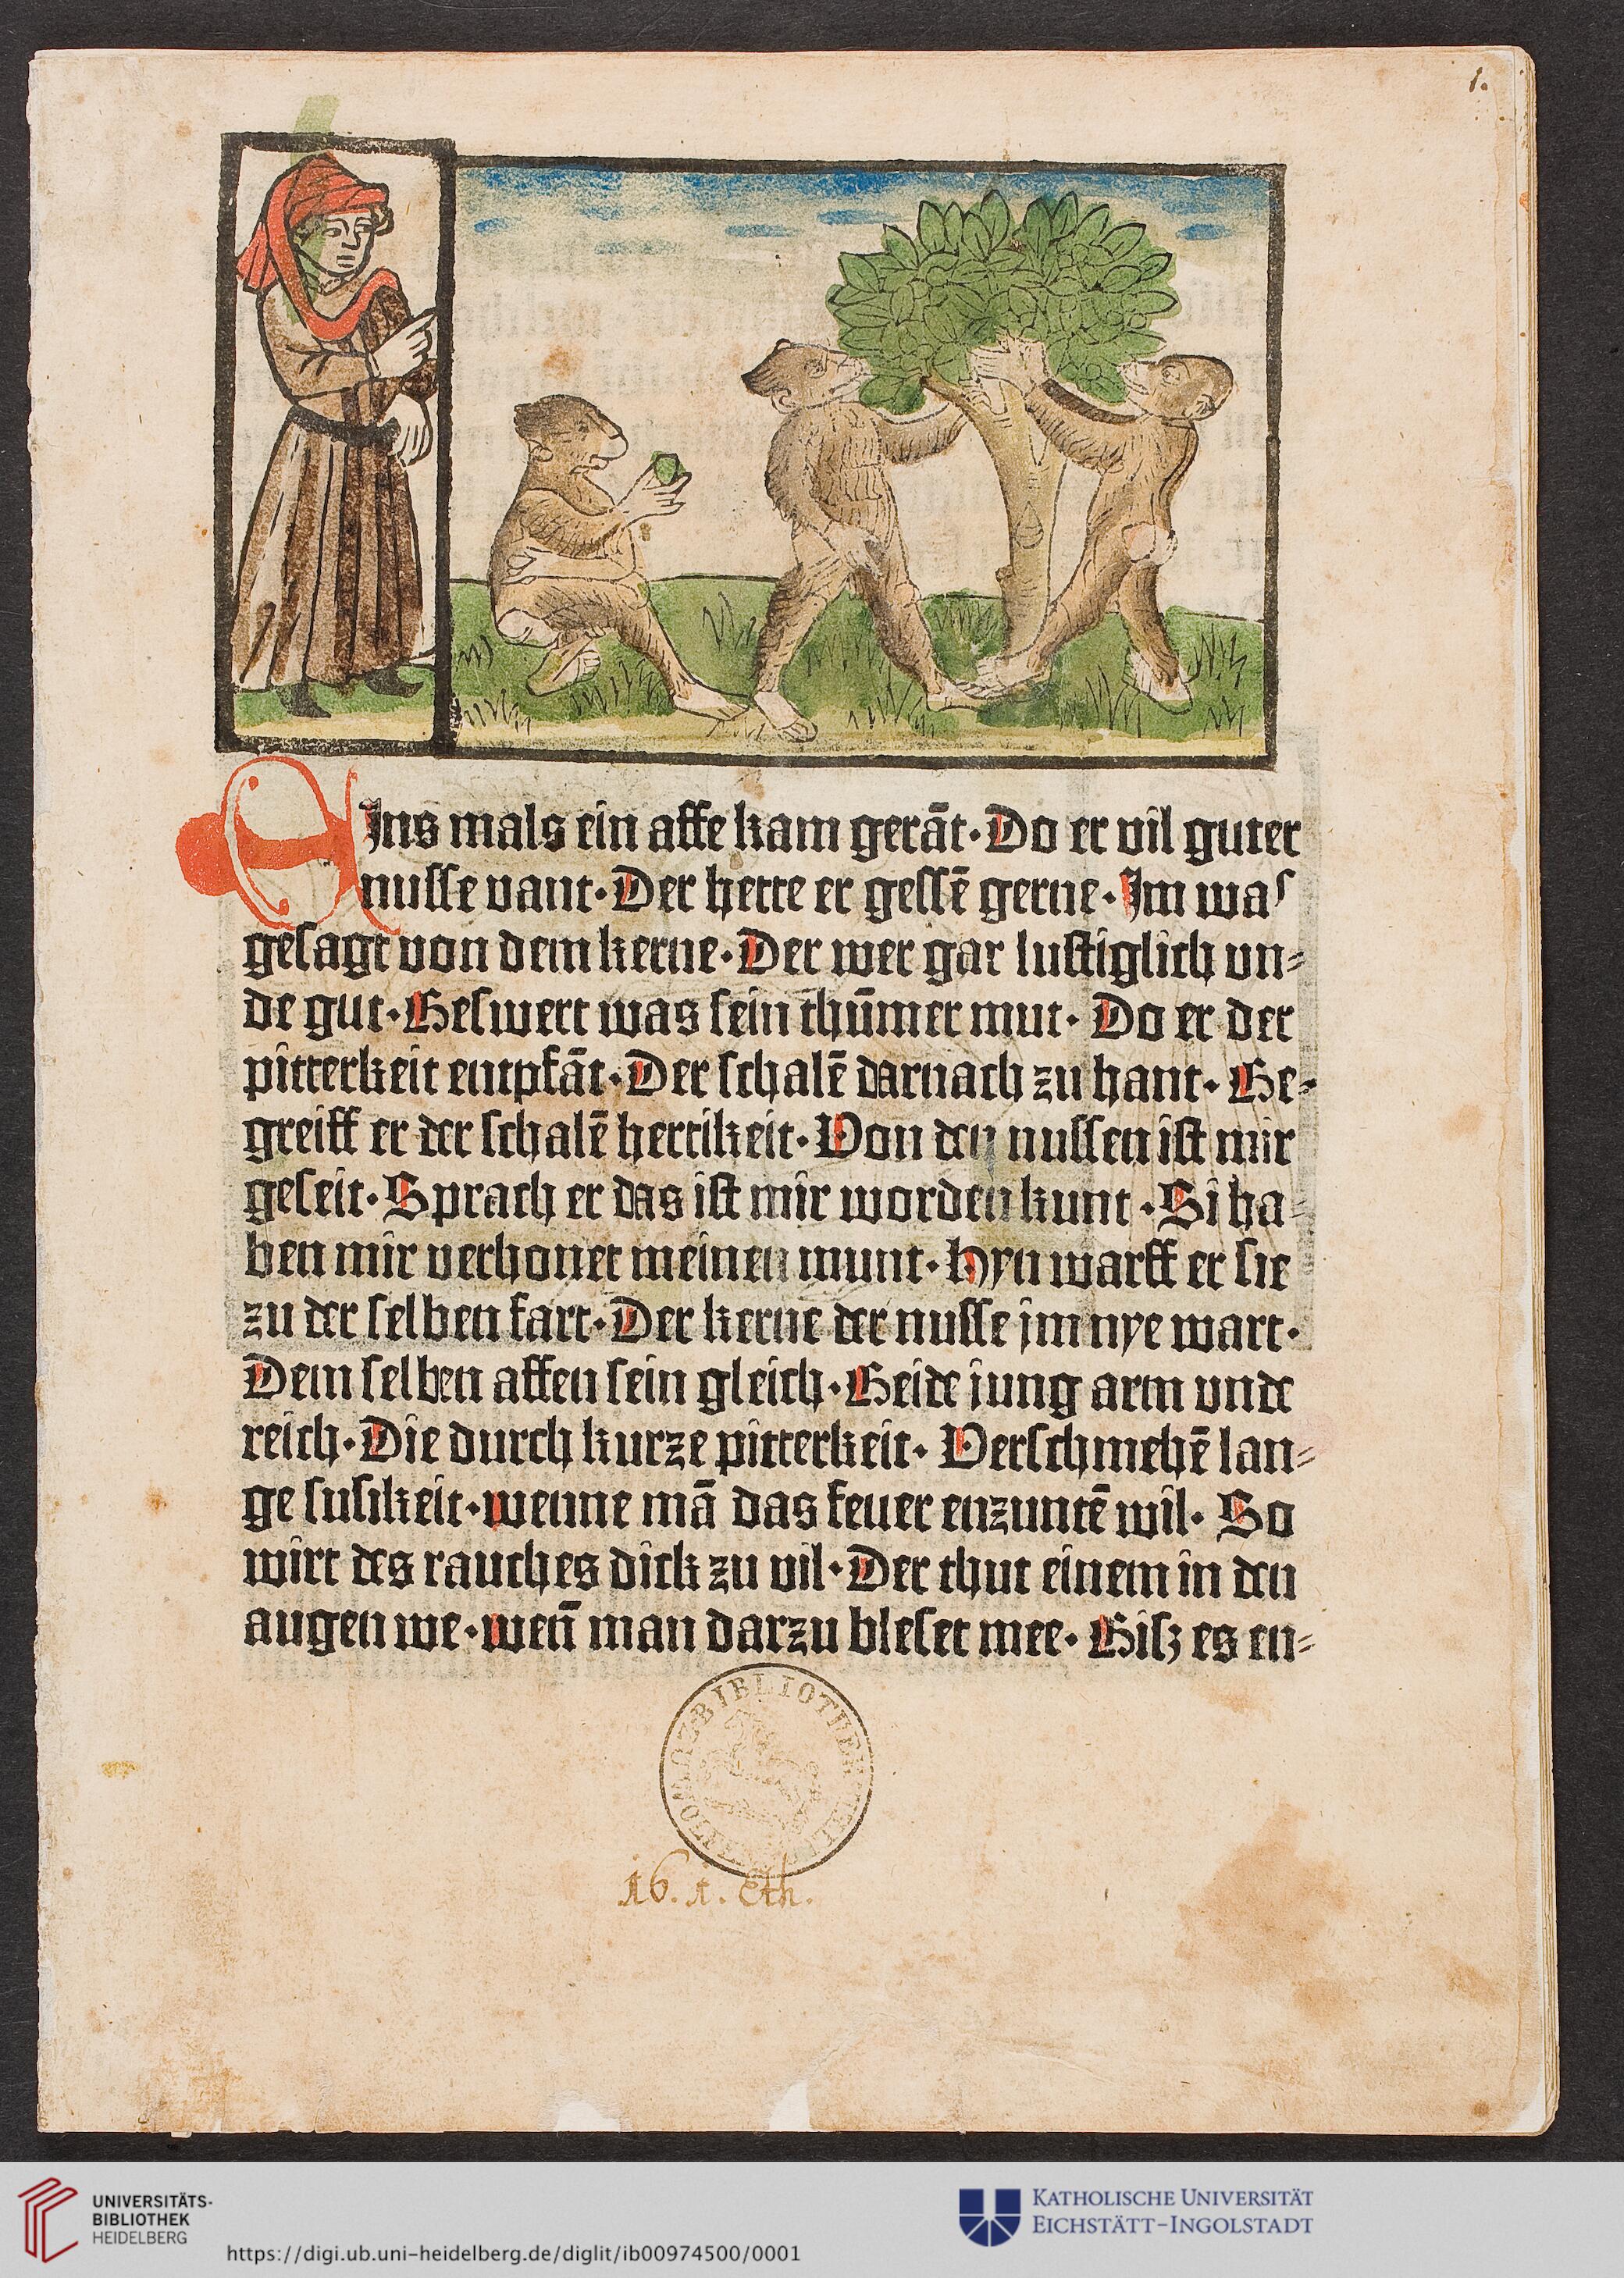 1.
EIns mals ein affe kam gerāt· Do er vil guter
nusse vant· Der hette er gessē gerne· Im was
gesagt von dem kerne· Der wer gar lustiglich vn⸗
de gut· Beswert was sein thūmer mut· Do er der
pitterkeit entpfāt· Der schalē darnach zu hant· Be⸗
greiff er der schalē hertikeit· Von den nussen ist mir
geseit· Sprach er das ist mir worden kunt· Si ha⸗
ben mir verhonet meinen munt· Hyn warff er sie
zu der selben fart· Der kerne der nusse im nye wart·
Dem selben affen sein gleich· Beide iung arm vnde
reich· Die durch kurze pitterkeit· Verschmehē lan⸗
ge susikeit· wenne mā das feuer enzuntē wil· So
wirt des rauches dick zu vil· Der thut einem in den
augen we· wen̄ man darzu bleset mee· Bisz es en⸗
BIBLIOTHEK
16. 1. Eth.
UNIVERSITÄTS-
BIBLIOTHEK
HEIDELBERG
https://digi.ub.uni-heidelberg.de/diglit/ib00974500/0001
KATHOLISCHE UNIVERSITÄT
EICHSTÄTT-INGOLSTADT